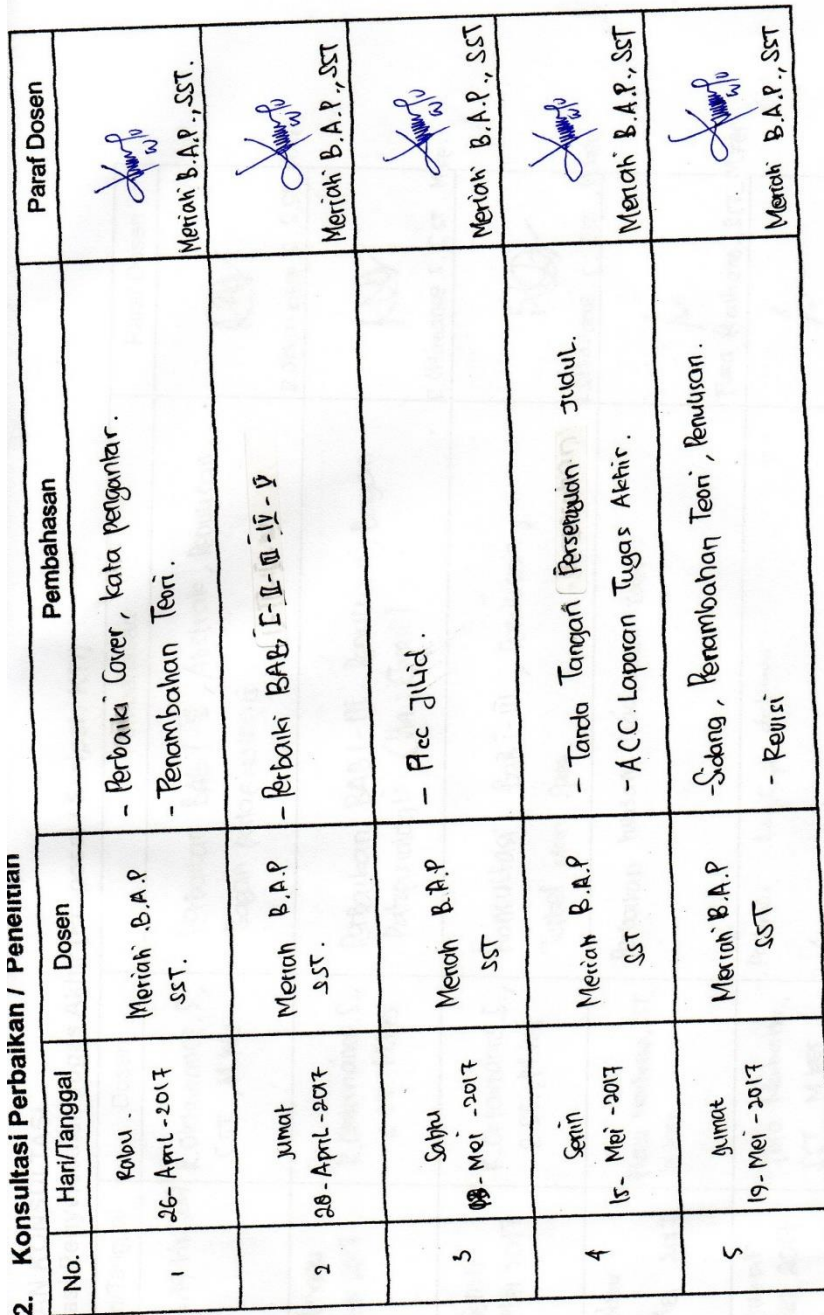 2. Konsultasi Perbaikan / Penelitian
No. Hari/Tanggal Dosen Pembahasan Paraf Dosen
1 Rabu. 26-April-2017 Meriah B.A.P SST. - Perbaiki Cover, kata pengantar.
- Penambahan Teori. Meriah B.A.P., SST.
2 Jumat 28-April-2017 Meriah B.A.P SST. - Perbaiki BAB I-II-III-IV-V Meriah B.A.P., SST
3 Sabtu -Mei-2017 Meriah B.A.P SST - Acc Jilid. Meriah B.A.P., SST
4 Senin 15-Mei-2017 Meriah B.A.P SST - Tanda Tangan Persetujuan Judul.
- ACC Laporan Tugas Akhir. Meriah B.A.P., SST
5 Jumat 19-Mei-2017 Meriah B.A.P SST -Sidang, Penambahan Teori, Penulisan.
- Revisi Meriah B.A.P., SST